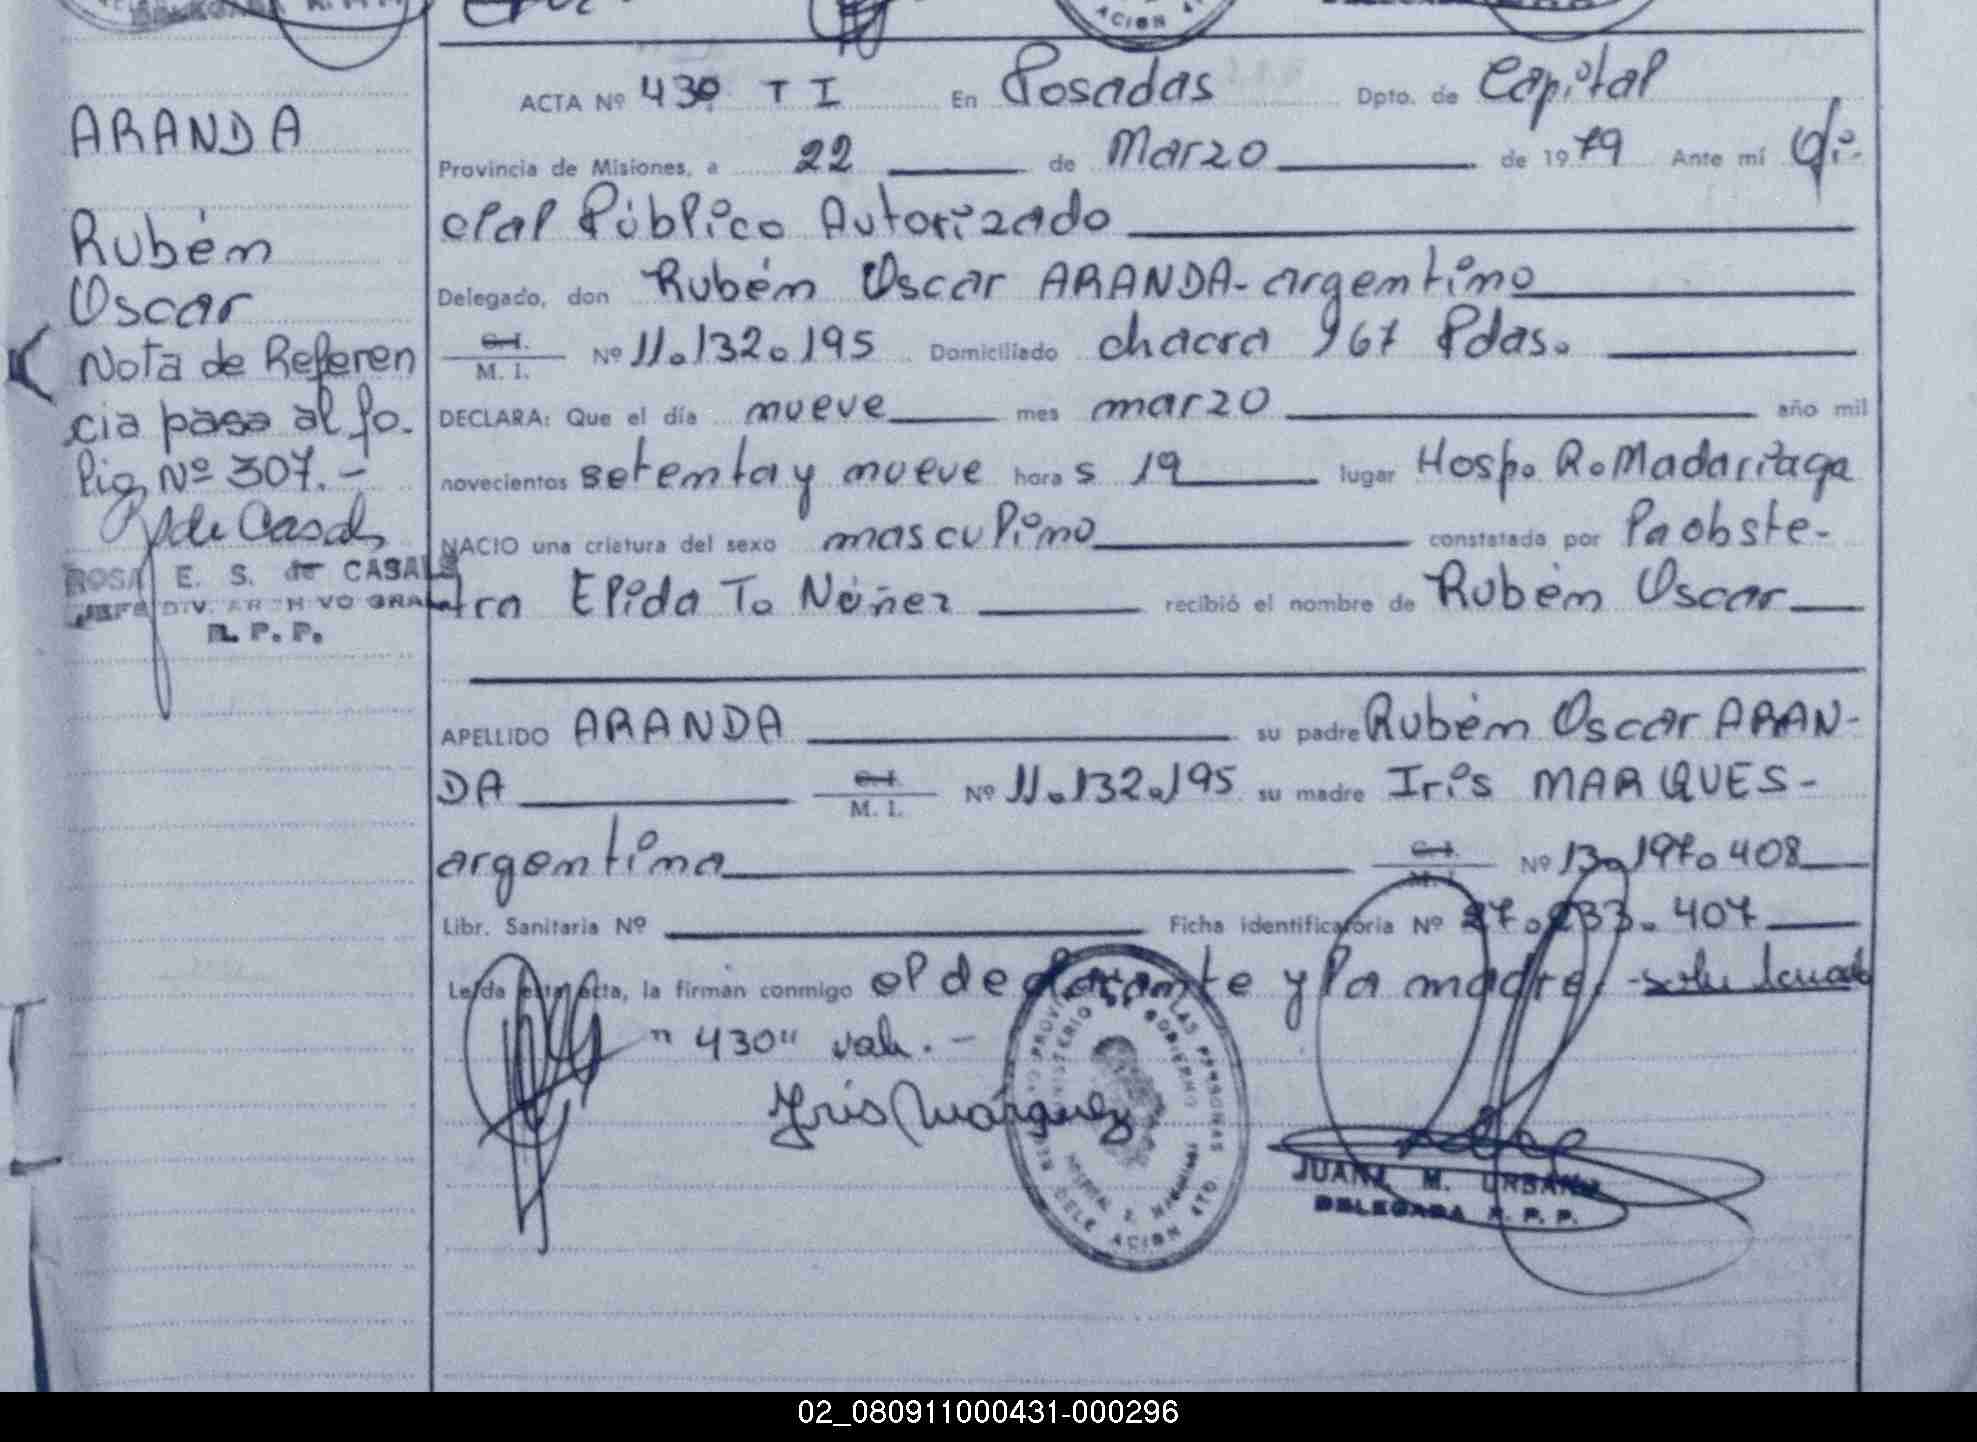 ACION 4TO
ARANDA
Rubén
Oscar
Nota de Referen
cia pasa al fo-
lio Nº 307.-
R de Casals
ROSA E. S. de CASALS
JEFE DIV. ARCHIVO GRAL
R. P. P.
ACTA Nº 430 T I En Posadas Dpto. de Capital
Provincia de Misiones, a 22 de Marzo de 1979 Ante mí Ofi-
cial Público Autorizado
Delegado, don Rubén Oscar ARANDA- argentino
C.I. M. I. Nº 11.132.195 Domiciliado chacra 167 Pdas.
DECLARA: Que el día nueve mes marzo año mil
novecientos setenta y nueve hora s 19 lugar Hosp. R. Madariaga
NACIO una criatura del sexo masculino constatada por la obste-
tra Elida T. Núñez recibió el nombre de Rubén Oscar
APELLIDO ARANDA su padre Rubén Oscar ARAN-
DA C.I. M. I. Nº 11.132.195 su madre Iris MARQUES-
argentina C.I. M. I. Nº 13.197.408
Libr. Sanitaria Nº Ficha identificatoria Nº 27.233.407
Leída esta acta, la firman conmigo el declarante y la madre.
"430" vale.-
Iris Márquez
MINISTERIO DE GOBIERNO
DELEGACION 4TO
JUANA M. URBANO
DELEGADA R. P. P.
02_080911000431-000296